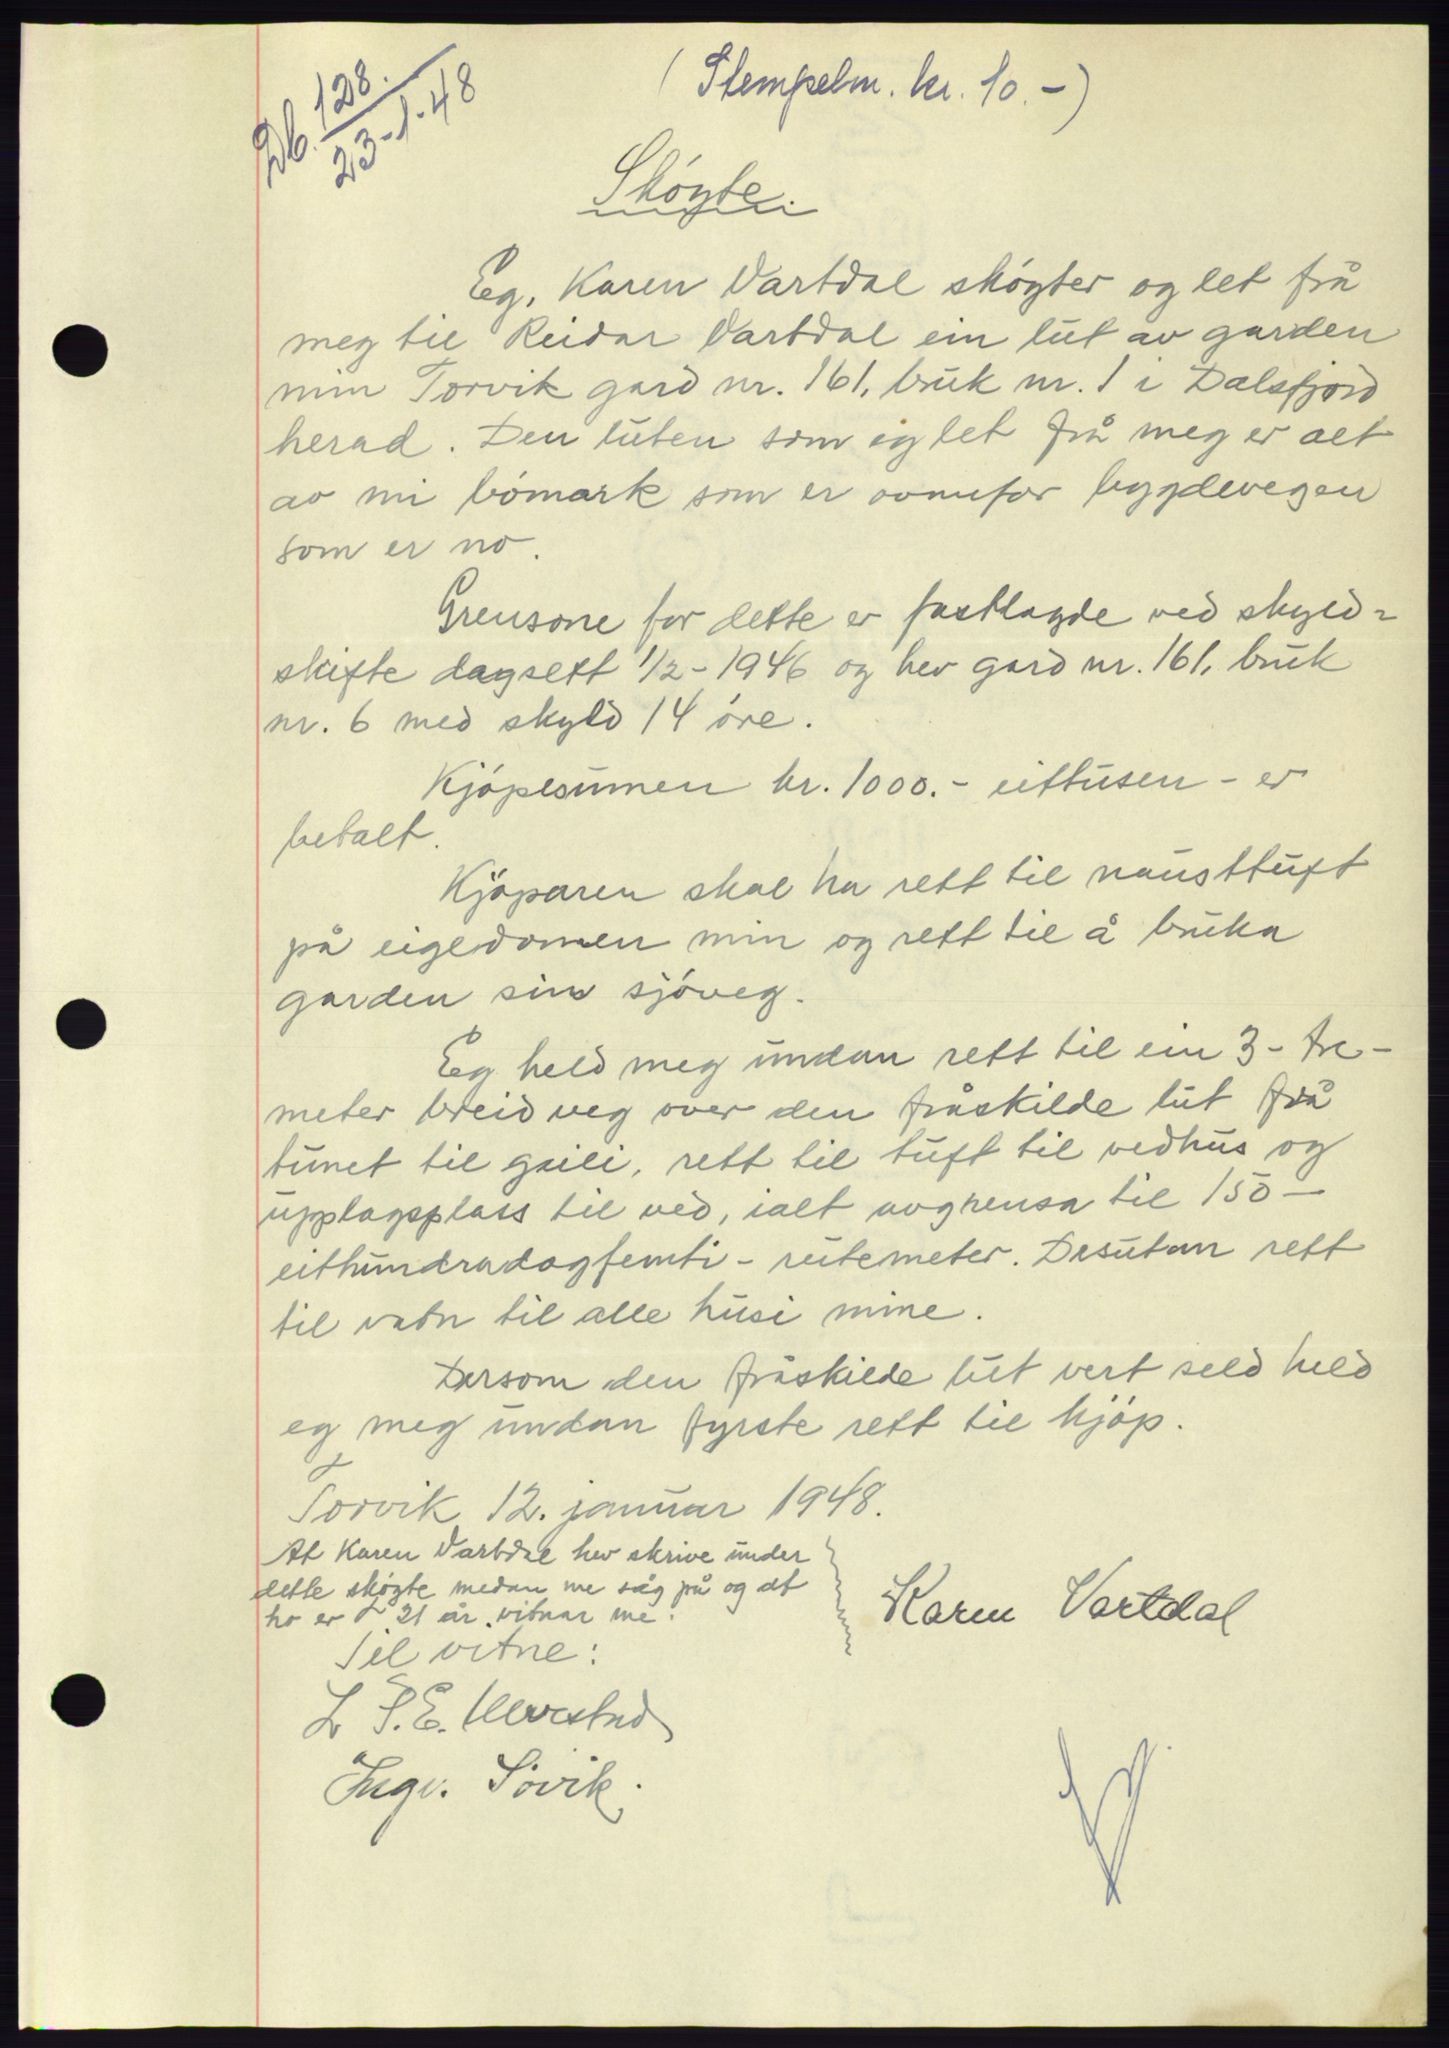 Db. 128.
23-1-48
(Stempelm. kr. 10.-)
Skóyte.
Eg, Karen Vartdal skóyter og let frå
meg til Reidar Vartdal ein lut av garden
min Torvik gard nr. 161, bruk nr. 1 i Dalsfjord
herad. Den luten som eg let frå meg er alt
av mi bómark som er ovanfor bygdevegen
som er no.
Grensone for dette er fastlagde ved skyld-
skifte dagsett 1/2-1946 og hev gard nr. 161, bruk
nr. 6 med skyld 14 óre.
Kjópesumen kr. 1000.- eittusen - er
betalt.
Kjóparen skal ha rett til nausttuft
på eigedomen min og rett til å bruka
garden sin sjóveg.
Eg held meg undan rett til ein 3 - tre -
meter breid veg over den fråskilde lut frå
tunet til geili, rett til tuft til vedhus og
upplagsplass til ved, ialt avgrensa til 150 -
eithundradogfemti - rutemeter. Desutan rett
til vatn til alle husi mine.
Dersom den fråskilde lut vert seld held
eg meg undan fyrste rett til kjóp.
Torvik 12. januar 1948.
At Karen Vartdal hev skrive under
dette skóyte medan me såg på og at
ho er 21 år, vitnar me.
Karen Vartdal
Til vitne:
L. P. E. Ulvestad
Ingv. Sóvik.